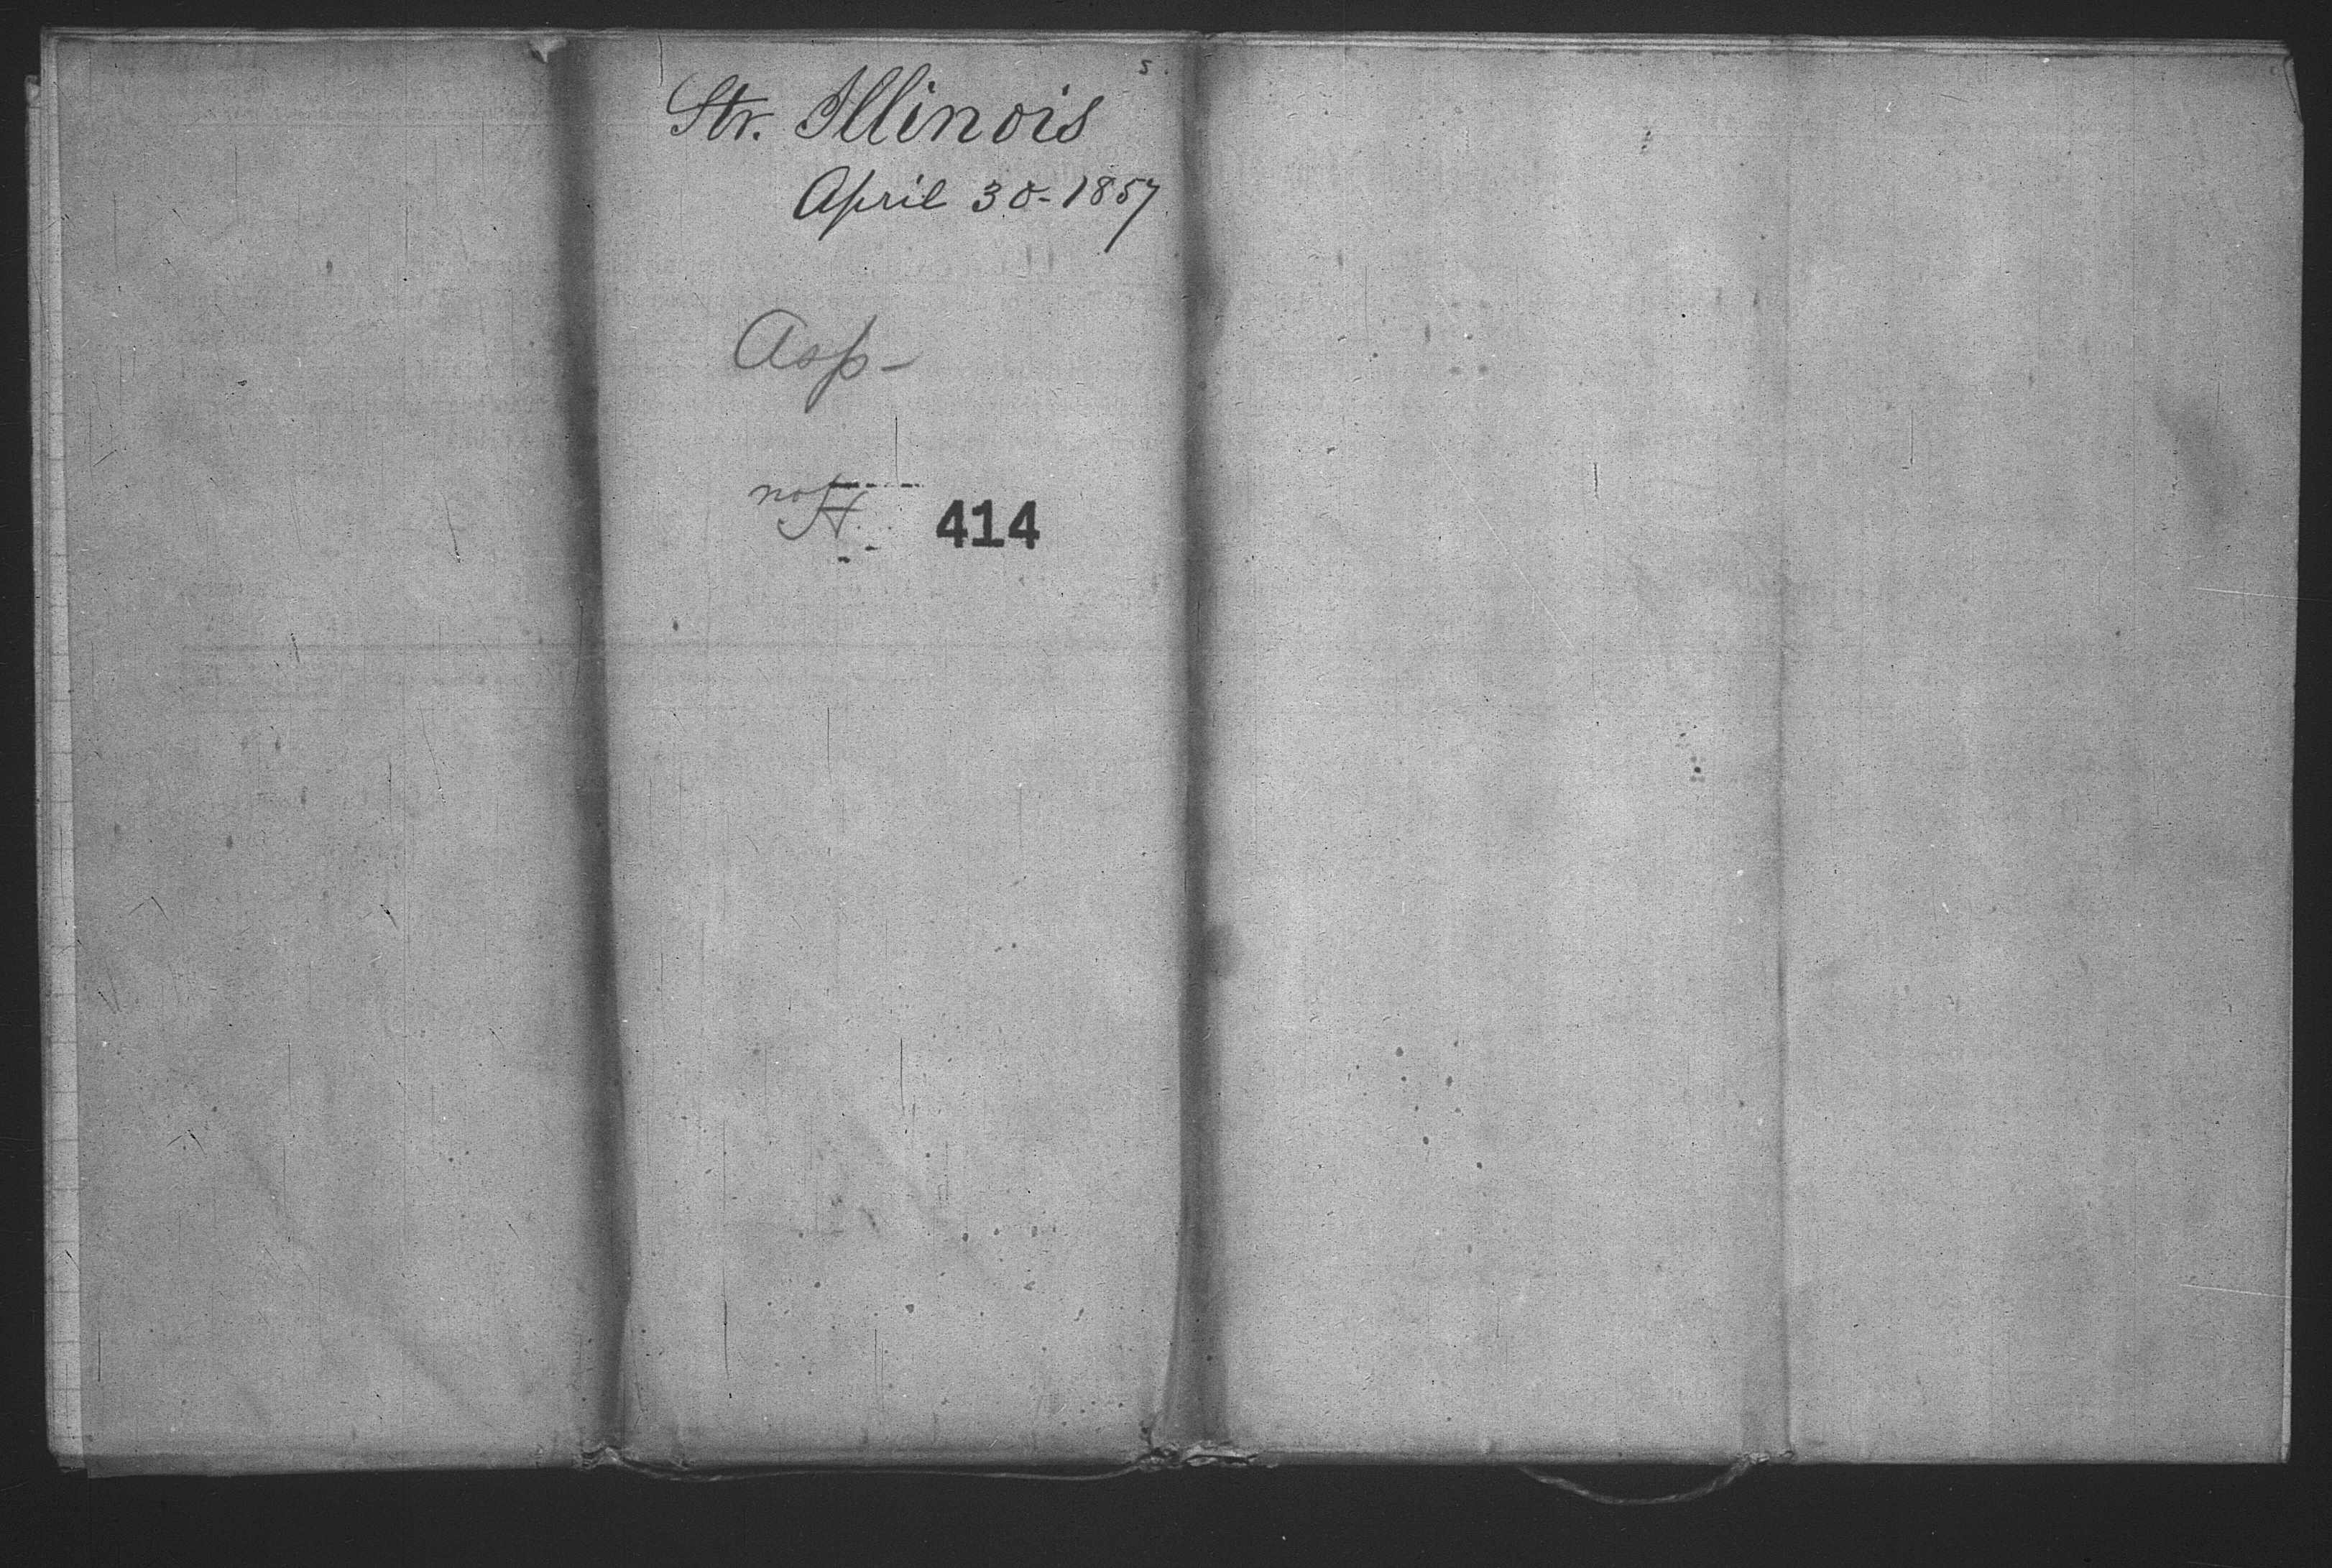 Str. Illinois
April 30-1857.
Asp-
not
414